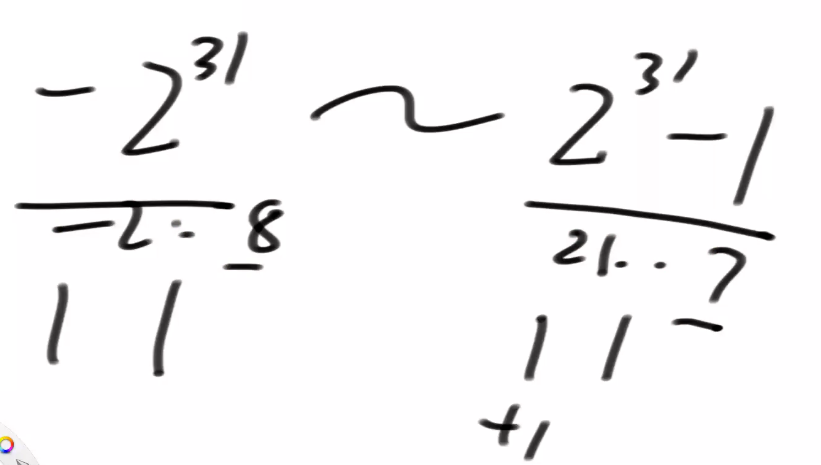 -2³¹ ~ 2³¹-1
-2.. 8 21.. 7
1 1 1 1
+1